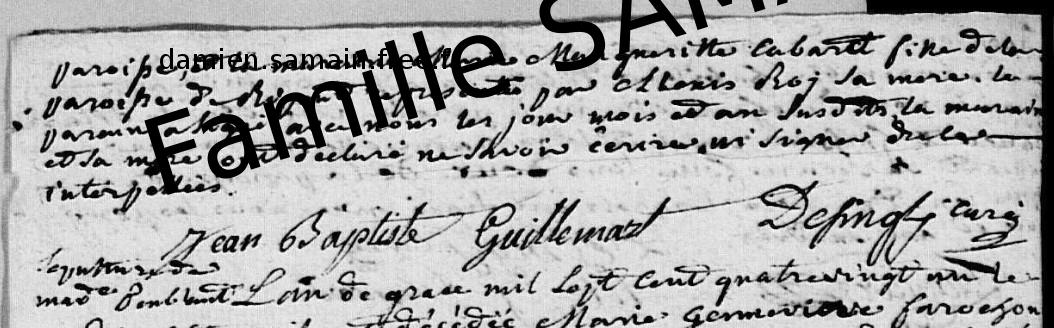 Famille SAMA
damien.samain.free
paroisse, et la marraine Marie Margueritte Cabaret fille de la
paroisse de par Alexis Roj sa mere. le
parain a signé avec nous les jour mois et an susdits, la maraine
et sa mere ont declaré ne savoir écrire, ni signer de ce
interpellées.
Jean Baptiste Guillemat Desingly curé
sepulture de
made Lan de grace mil sept cent quatrevingt un le
décédée Marie Gennevieve